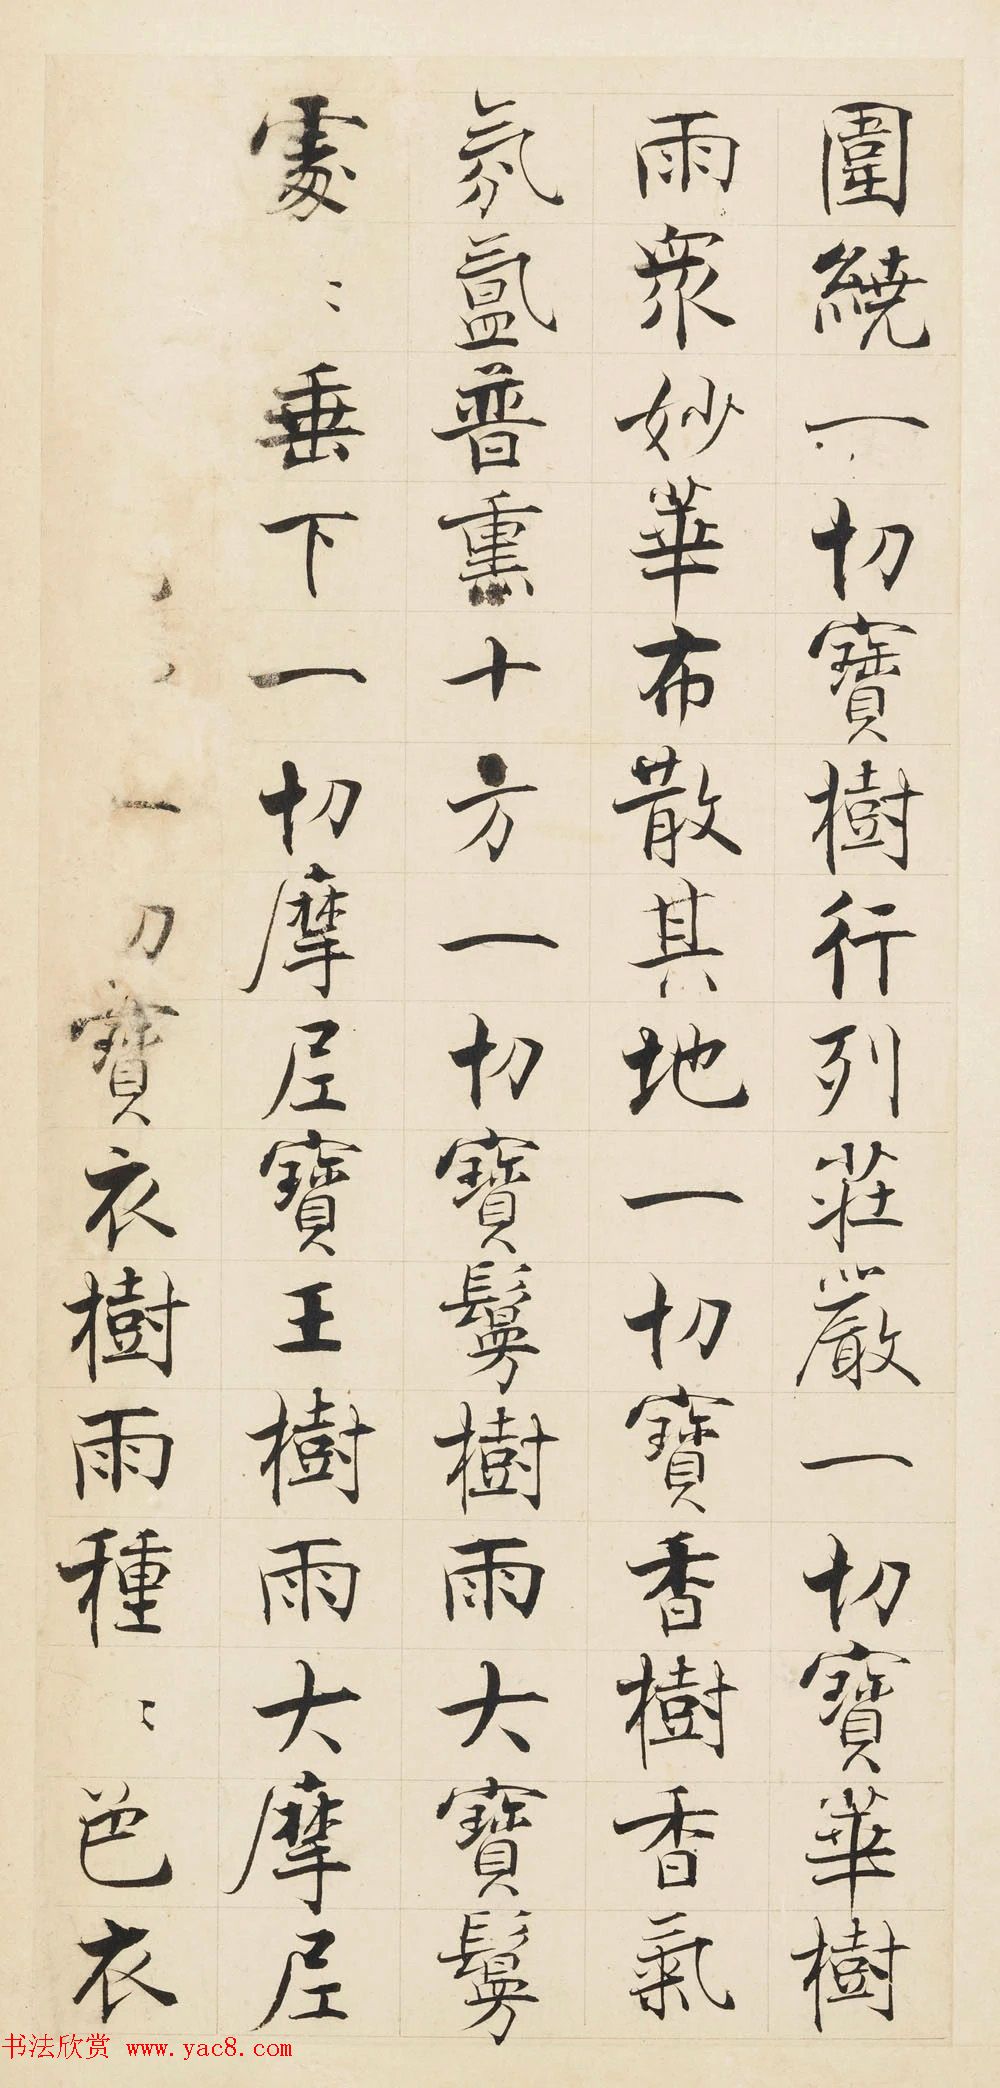 圍繞一切寶樹行列莊嚴一切寶華樹
雨衆妙華布散其地一切寶香樹香氣
氛氳普熏十方一切寶鬘樹雨大寶鬘
處〻垂下一切摩尼寶王樹雨大摩尼
一切寶衣樹雨種〻色衣
书法欣赏 www.yac8.com